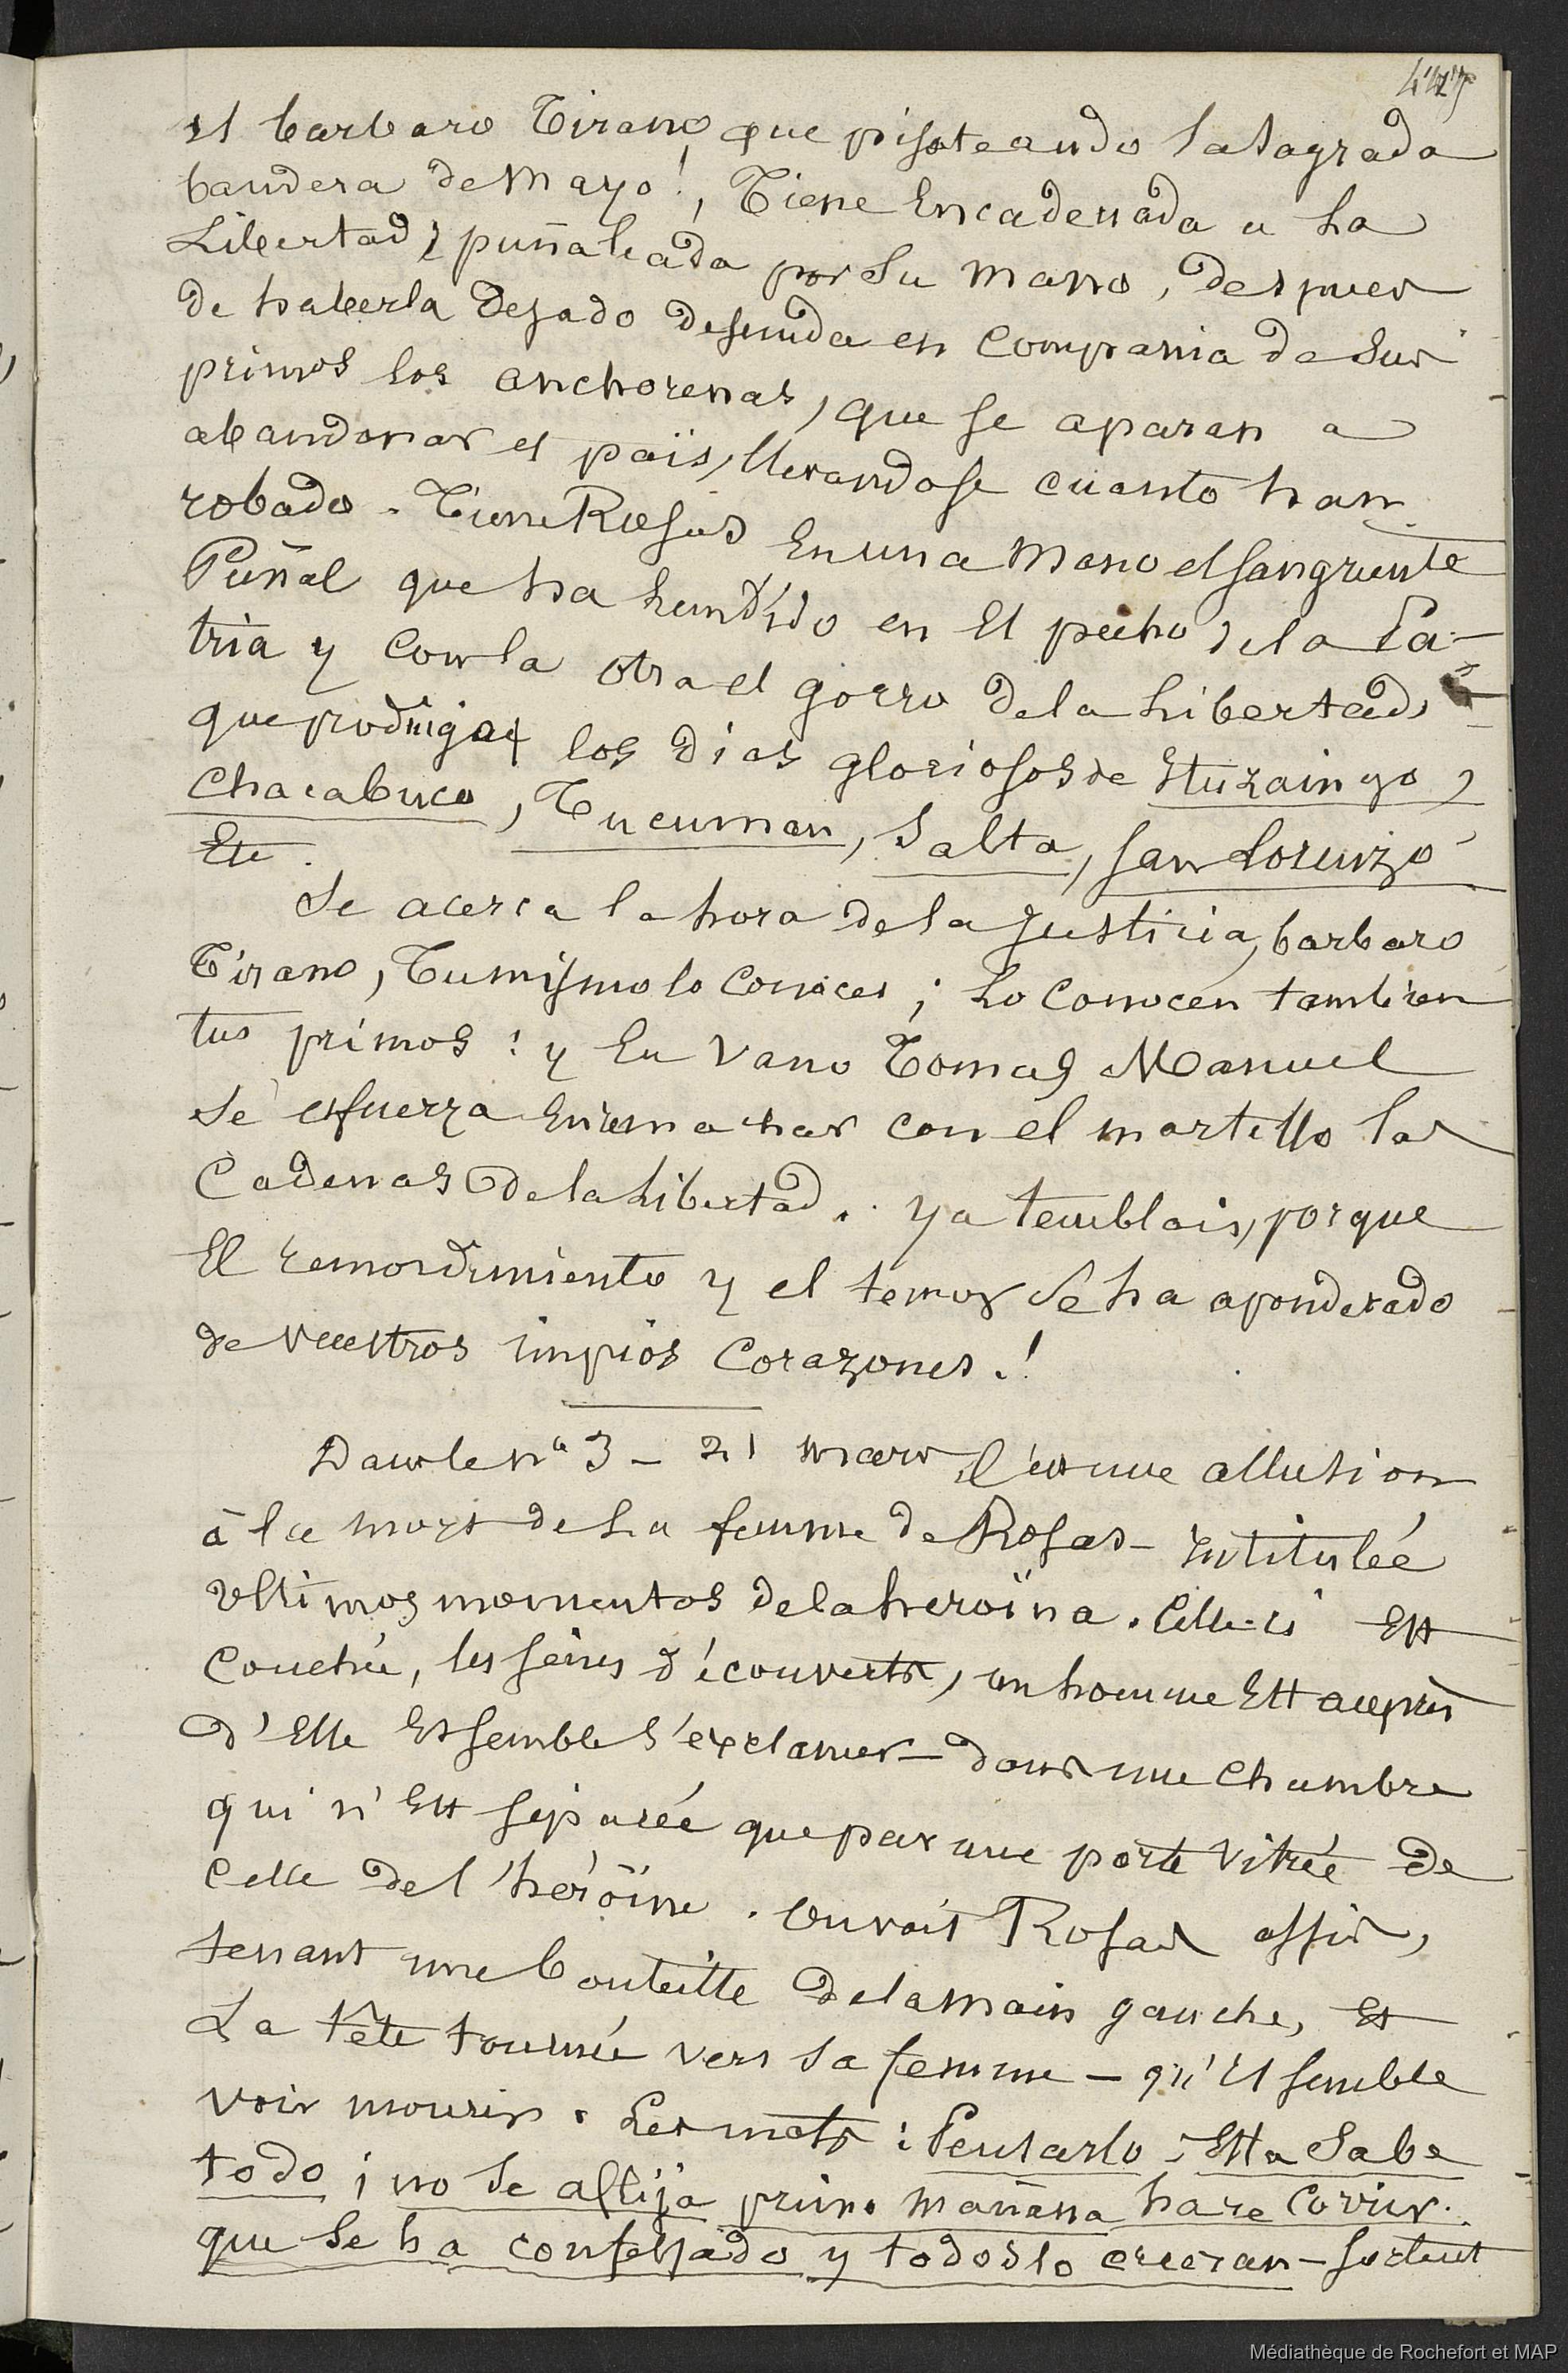 el barbaro Tirano, que pisoteando la sagrada
bandera de Mayo!, Tiene Encadenada a la
Libertad, puñaleada por su mano, despues
de haberla dejado desnuda en compania de sus
primos los anchorenas, que se aparan a
abandonar el païs, llevandose cuanto han
robado. Tiene Rosas En una mano el sangriento
Puñal que ha hundido en El pecho de la Pa-
tria y con la otra el gorro de la Libertad,
que prodiga los dias gloriosos de Ituzaingo,
Chacabuco, Tucuman, Salta, San Lorenzo
Etc.
Se acerca la hora de la justicia, barbaro
Tirano, Tu mismo lo conoces; Lo conocen tambien
tus primos! y En vano Tomas Manuel
se esfuerza En remachar con el martillo las
Cadenas de la Libertad. ya temblais, porque
El remordimiento y el temor se ha aponderado
de vuestros impios Corazones.!
Dans le nº 3 - 21 mars, c'est une allusion
à la mort de la femme de Rosas - intitulée
Ultimos momentos de la heroïna. Celle-ci Est
couchée, les seins découverts, un homme Est auprès
d'Elle Et semble s'exclamer - dans une chambre
qui n'Est séparée que par une porte vitrée de
celle de l'héroïne. On voit Rosas assis,
tenant une bouteille de la main gauche, Et
La tête tournée vers sa femme - qu'il semble
voir mourir. Les mots: Pensarlo; Ella Sabe
todo; no se aflija primo mañana hare Correr.
que se ha confesado y todos lo creeran - sortent
Médiathèque de Rochefort et MAP